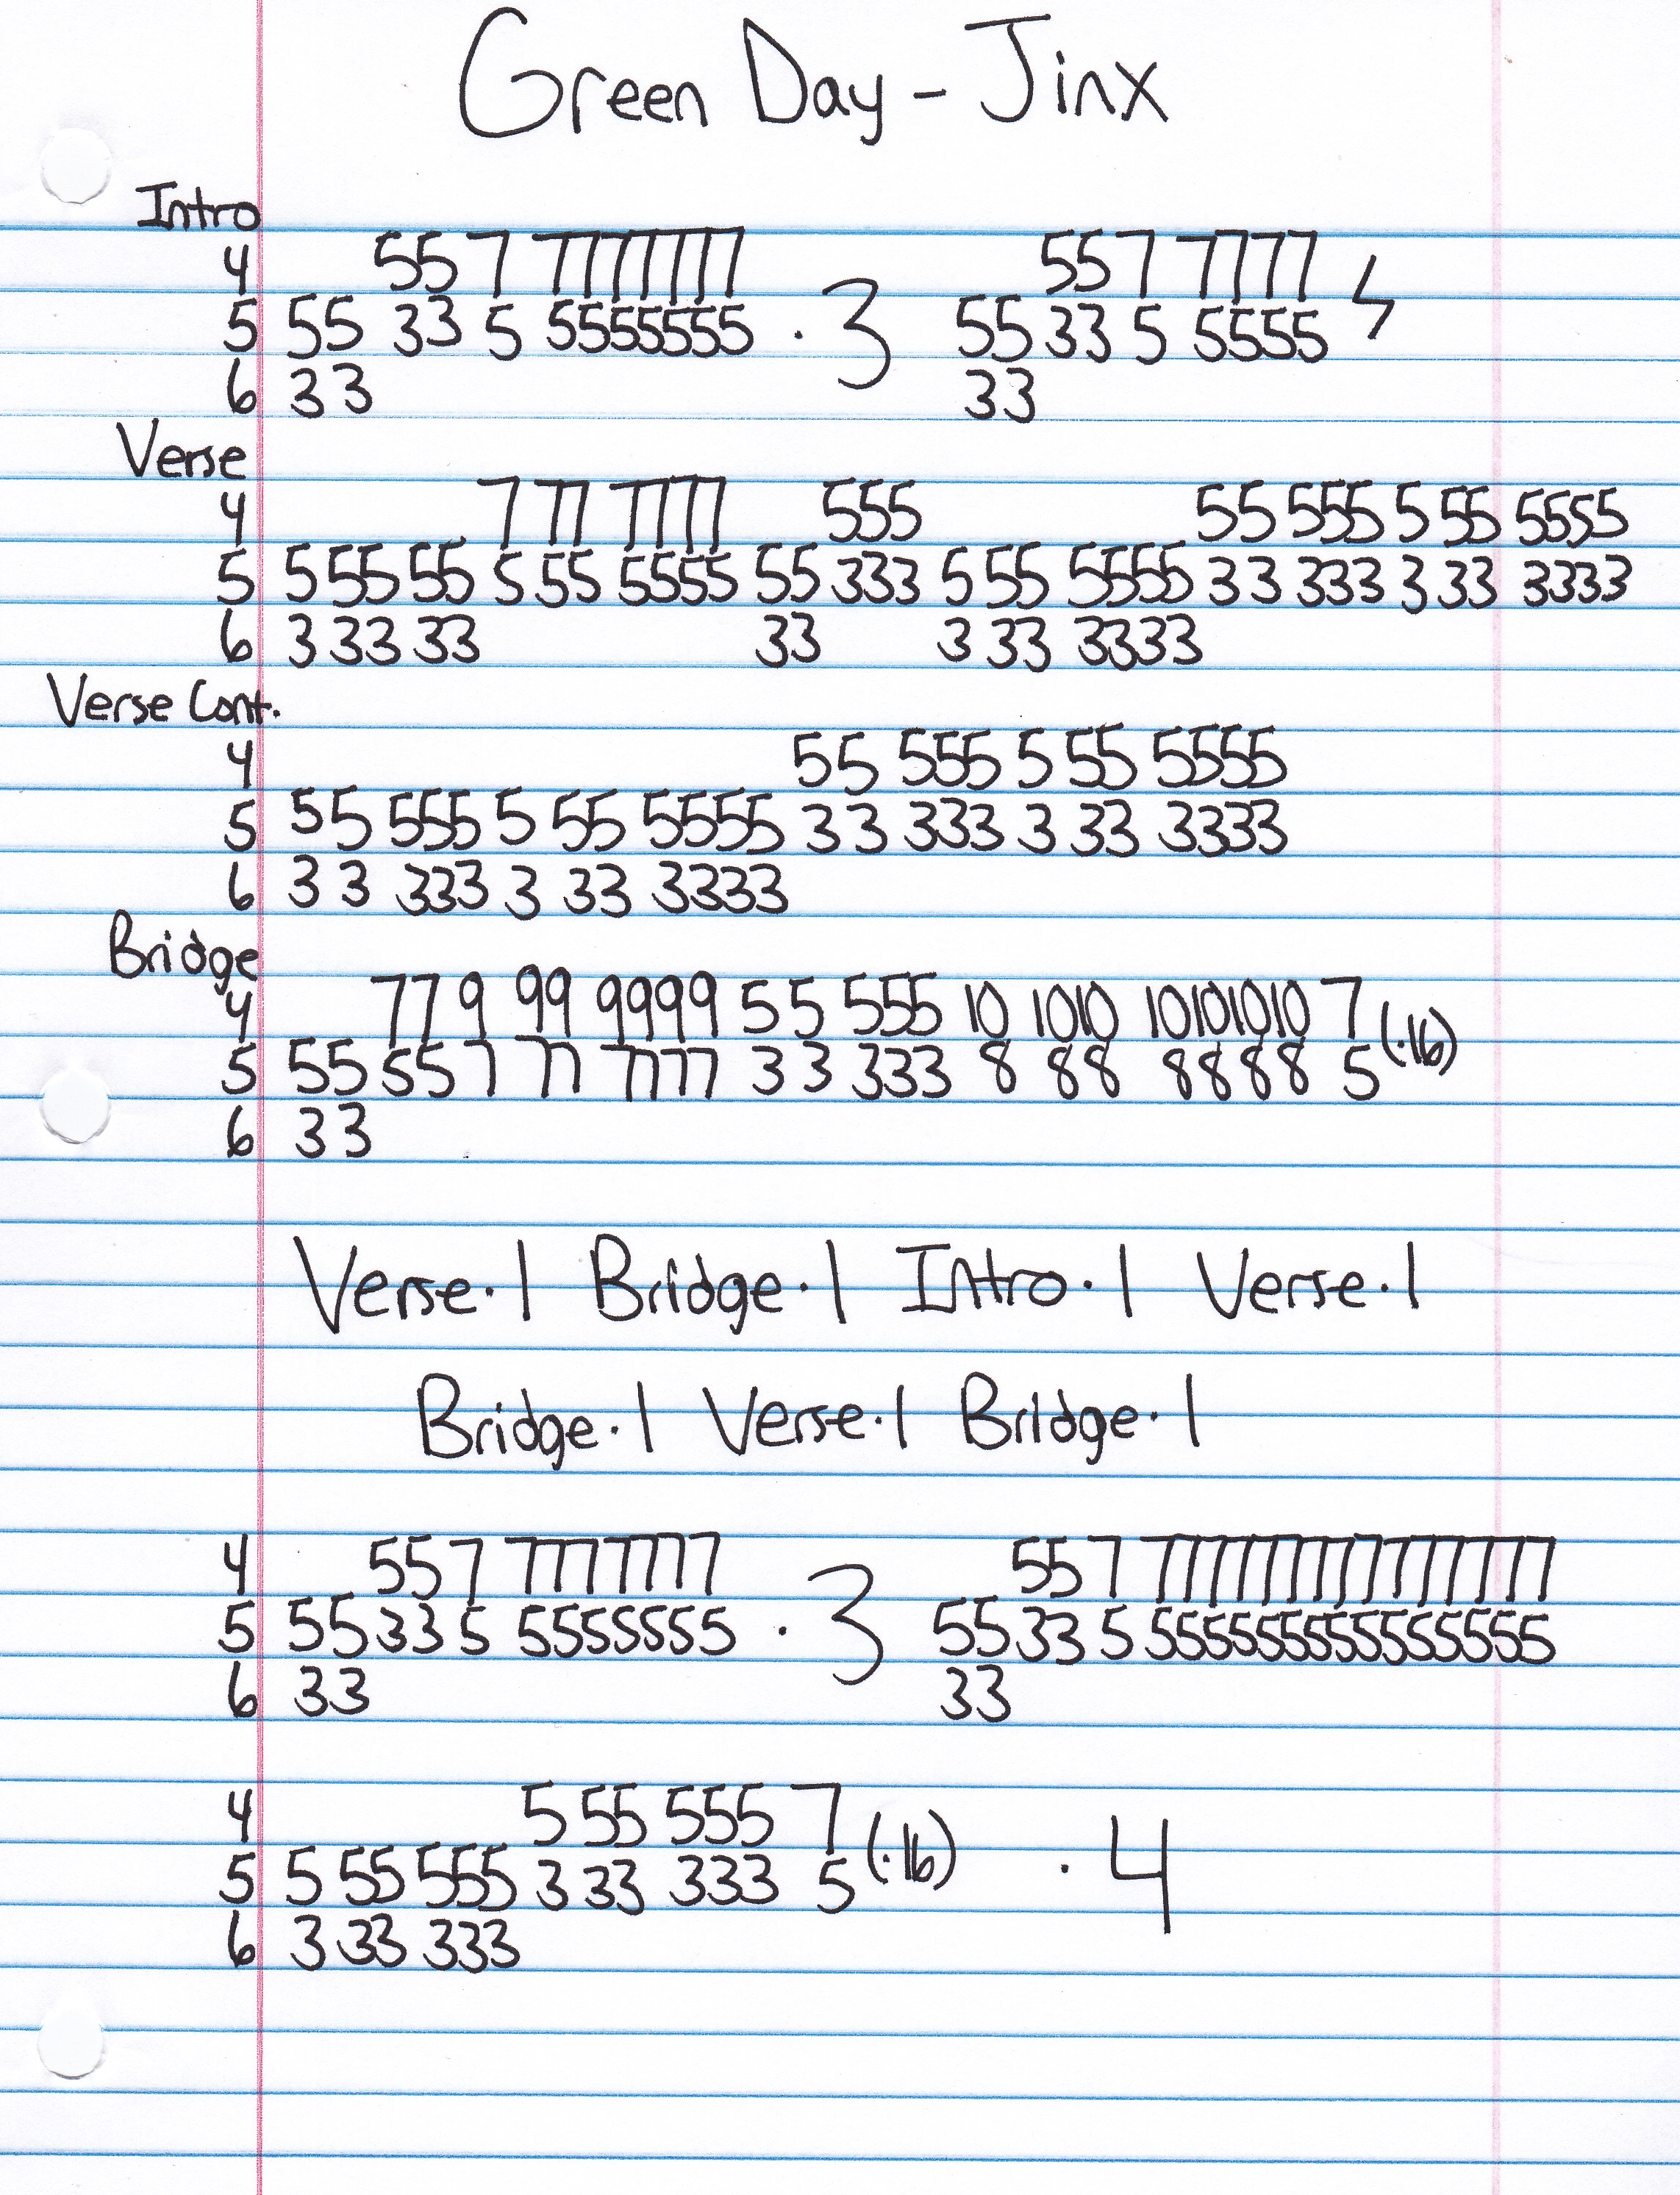 Green Day - Jinx
Intro
4 55 7 7777777 557 7777 ϟ
5 55 33 5 5555555 · 3 55 33 5 5555
6 33 33
Verse
4 7 77 7777 555 55 555 5 55 5555
5 5 55 55 5 55 5555 55 333 5 55 5555 33 333 3 33 3333
6 3 33 33 33 3 33 3333
Verse Cont.
4 55 555 5 55 5555
5 55 555 5 55 5555 33 333 3 33 3333
6 33 333 3 33 3333
Bridge
4 77 9 99 9999 55 555 10 1010 10101010 7
5 55 55 7 77 7777 33 333 8 88 8888 5 (·16)
6 33
Verse·1 Bridge·1 Intro·1 Verse·1
Bridge·1 Verse·1 Bridge·1
4 557 7777777 557 777777777777777
5 55 33 5 5555555 · 3 55 33 5 555555555555555
6 33 33
4 5 55 555 7
5 5 55 555 3 33 333 5 (·16) · 4
6 3 33 333